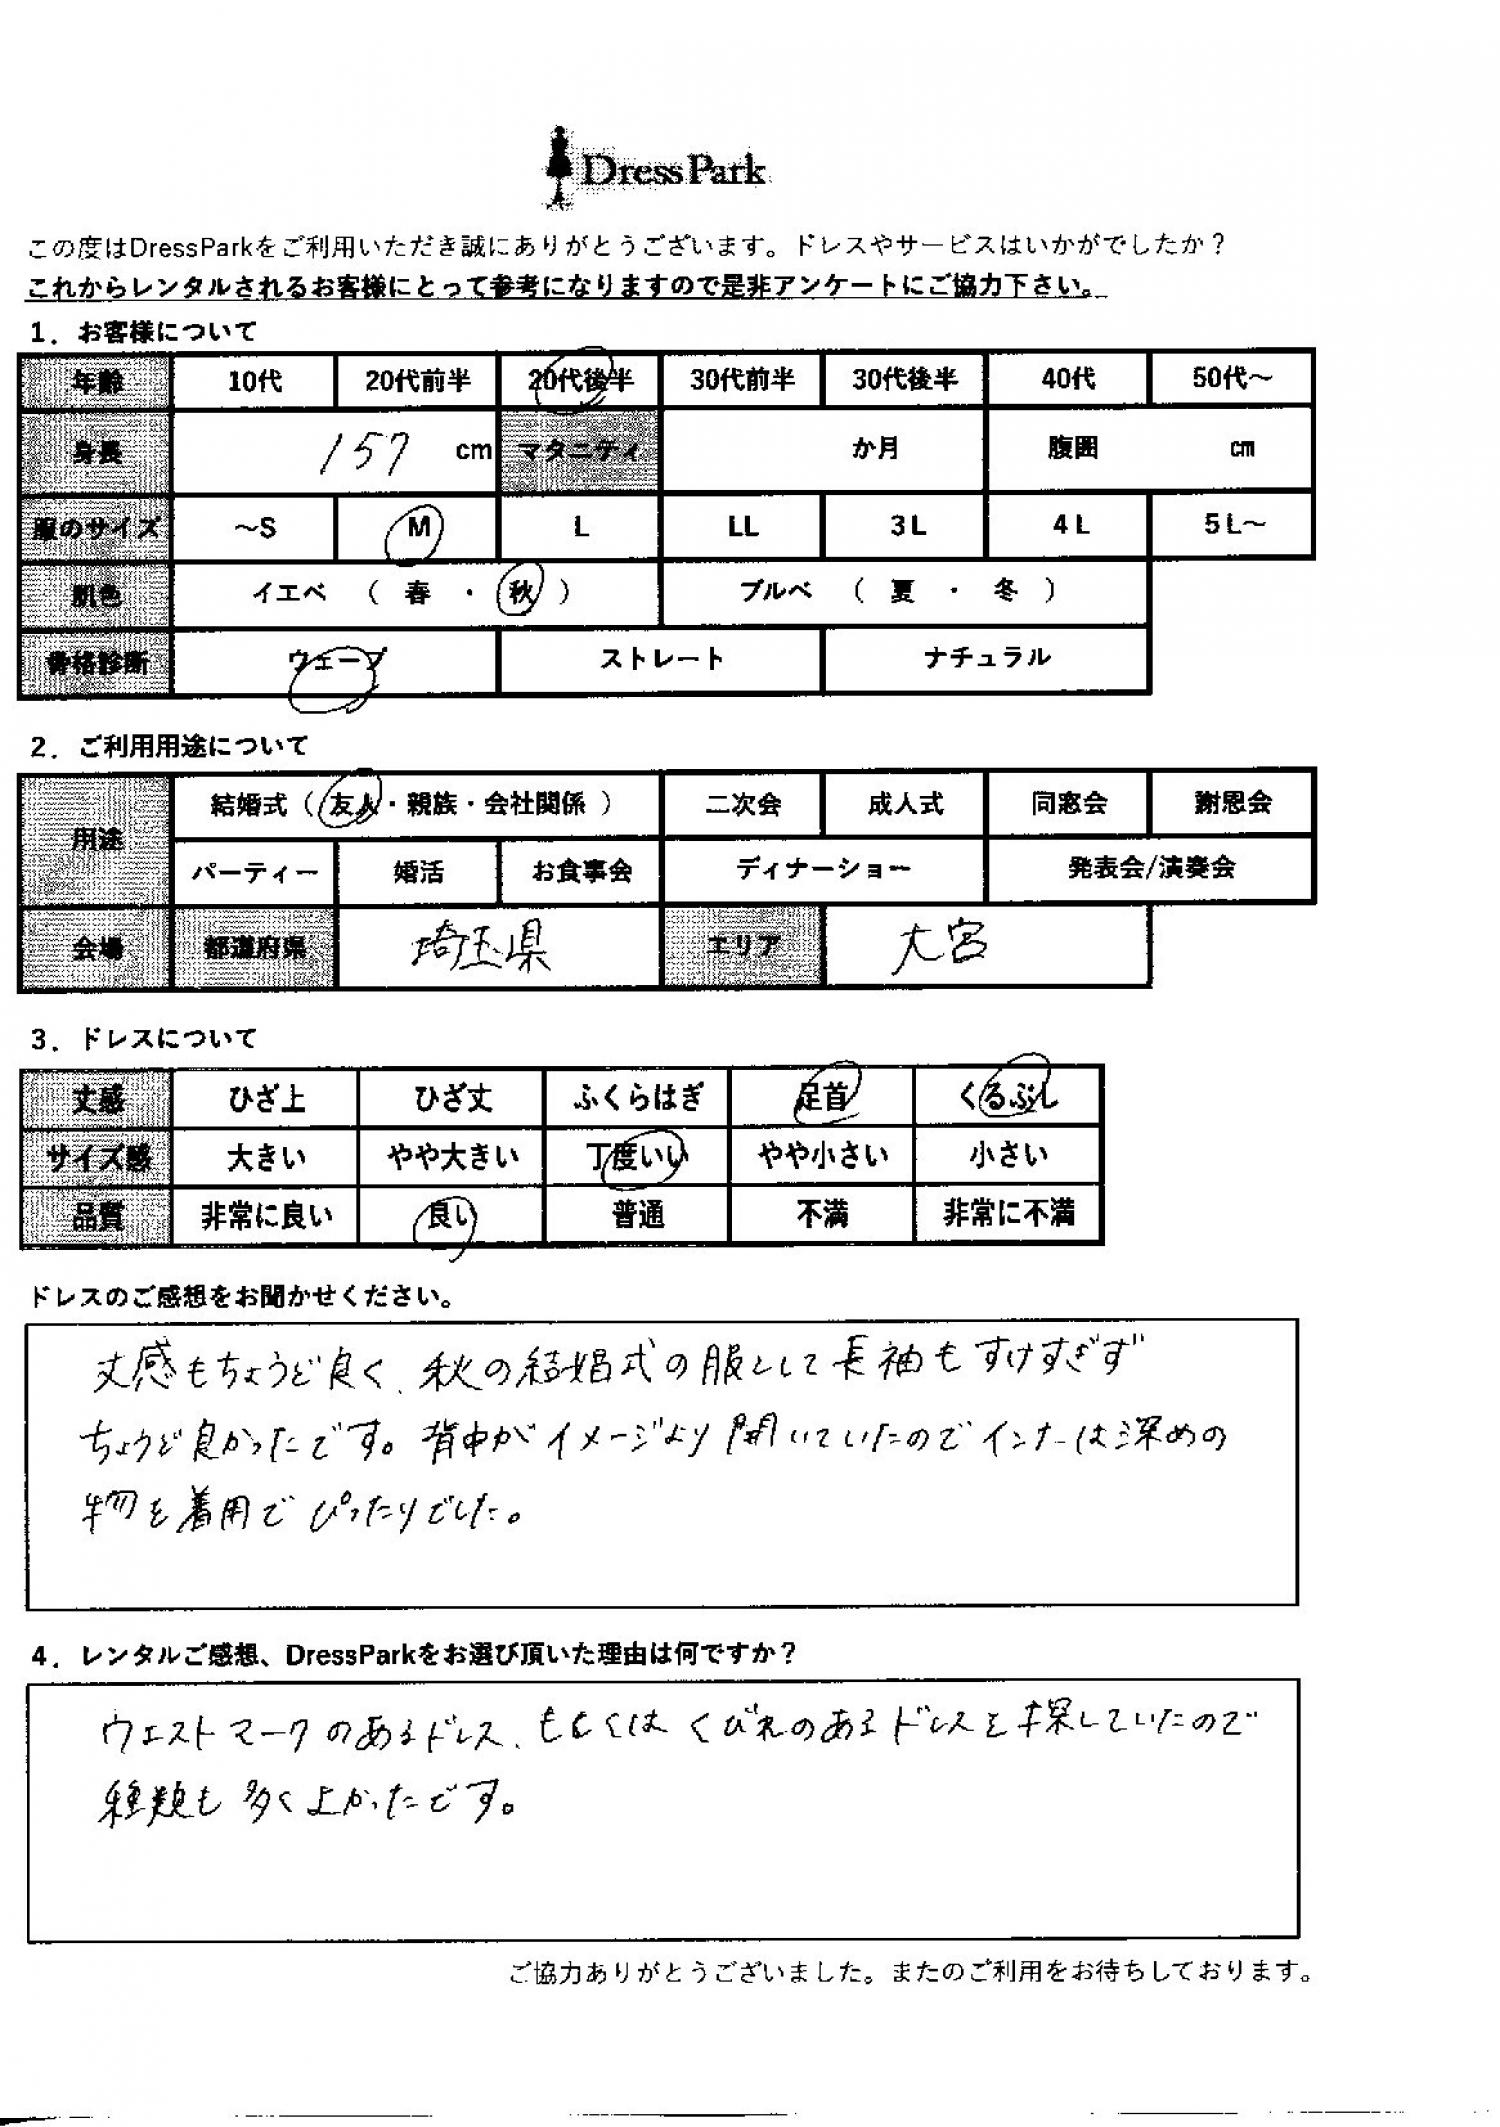 DressPark
この度はDressParkをご利用いただき誠にありがとうございます。ドレスやサービスはいかがでしたか？
これからレンタルされるお客様にとって参考になりますので是非アンケートにご協力下さい。
1．お客様について
年齢 10代 20代前半 20代後半 30代前半 30代後半 40代 50代～
身長 157 cm マタニティ か月 腹囲 cm
服のサイズ ～S M L LL 3L 4L 5L～
肌色 イエベ （ 春 ・ 秋 ） ブルベ （ 夏 ・ 冬 ）
骨格診断 ウェーブ ストレート ナチュラル
2．ご利用用途について
用途 結婚式（ 友人・親族・会社関係 ） 二次会 成人式 同窓会 謝恩会
パーティー 婚活 お食事会 ディナーショー 発表会/演奏会
会場 都道府県 埼玉県 エリア 大宮
3．ドレスについて
丈感 ひざ上 ひざ丈 ふくらはぎ 足首 くるぶし
サイズ感 大きい やや大きい 丁度いい やや小さい 小さい
品質 非常に良い 良い 普通 不満 非常に不満
ドレスのご感想をお聞かせください。
丈感もちょうど良く、秋の結婚式の服として長袖もすけすぎず
ちょうど良かったです。背中がイメージより開いていたのでインナーは深めの
物を着用でぴったりでした。
4．レンタルご感想、DressParkをお選び頂いた理由は何ですか？
ウエストマークのあるドレス、もしくはくびれのあるドレスを探していたので
種類も多くよかったです。
ご協力ありがとうございました。またのご利用をお待ちしております。